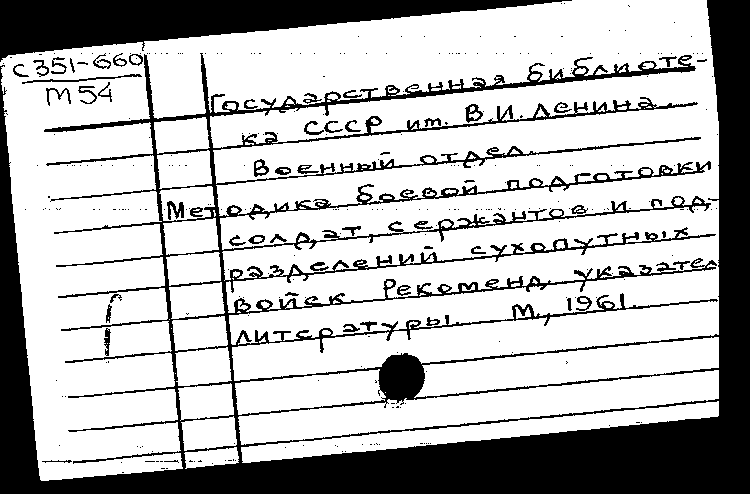 С351-660
М54
Государственная библиоте-
ка СССР им. В.И. Ленина.
Военный отдел.
Методика боевой подготовки
солдат, сержантов и под-
разделений сухопутных
войск. Рекоменд. указател
литературы. М., 1961.